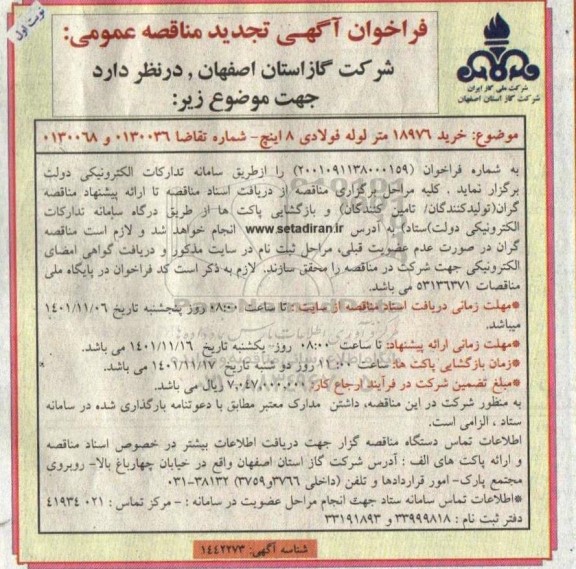 نوبت اول
فراخوان آگهی تجدید مناقصه عمومی:
شرکت گاز استان اصفهان , درنظر دارد
جهت موضوع زیر:
شرکت ملی گاز ایران
شرکت گاز استان اصفهان
موضوع: خرید ۱۸۹۷۶ متر لوله فولادی ۸ اینچ- شماره تقاضا ۰۱۳۰۰۳۶ و ۰۱۳۰۰۶۸
به شماره فراخوان (۲۰۰۱۰۹۱۱۳۸۰۰۰۱۵۹) را ازطریق سامانه تدارکات الکترونیکی دولت
برگزار نماید , کلیه مراحل برگزاری مناقصه از دریافت اسناد مناقصه تا ارائه پیشنهاد مناقصه
گران(تولیدکنندگان/ تامین کنندگان) و بازگشایی پاکت ها از طریق درگاه سامانه تدارکات
الکترونیکی دولت)ستاد) به آدرس www.setadiran.ir انجام خواهد شد و لازم است مناقصه
گران در صورت عدم عضویت قبلی، مراحل ثبت نام در سایت مذکور و دریافت گواهی امضای
الکترونیکی جهت شرکت در مناقصه را محقق سازند. لازم به ذکر است کد فراخوان در پایگاه ملی
مناقصات ۵۳۱۳۶۳۷۱ می باشد.
*مهلت زمانی دریافت اسناد مناقصه از سایت: تا ساعت ۰۸:۰۰ روز پنجشنبه تاریخ ۱۴۰۱/۱۱/۰۶
میباشد.
*مهلت زمانی ارائه پیشنهاد: تا ساعت ۰۸:۰۰ روز یکشنبه تاریخ ۱۴۰۱/۱۱/۱۶ می باشد.
*زمان بازگشایی پاکت ها: ساعت ۱۱:۰۰ روز دو شنبه تاریخ ۱۴۰۱/۱۱/۱۷ می باشد.
*مبلغ تضمین شرکت در فرآیند ارجاع کار: ریال می باشد.
به منظور شرکت در این مناقصه، داشتن مدارک معتبر مطابق با دعوتنامه بارگذاری شده در سامانه
ستاد ، الزامی است.
اطلاعات تماس دستگاه مناقصه گزار جهت دریافت اطلاعات بیشتر در خصوص اسناد مناقصه
و ارائه پاکت های الف : آدرس شرکت گاز استان اصفهان واقع در خیابان چهارباغ بالا- روبروی
مجتمع پارک- امور قراردادها و تلفن (داخلی ۳۷۶۶و ۳۷۵۹) ۳۸۱۳۲-۰۳۱
*اطلاعات تماس سامانه ستاد جهت انجام مراحل عضویت در سامانه : - مرکز تماس : ۰۲۱ ۴۱۹۳۴
دفتر ثبت نام : ۳۳۹۹۹۸۱۸ و ۳۳۱۹۱۸۹۳
شناسه آگهی: ۱۴۴۲۲۷۳